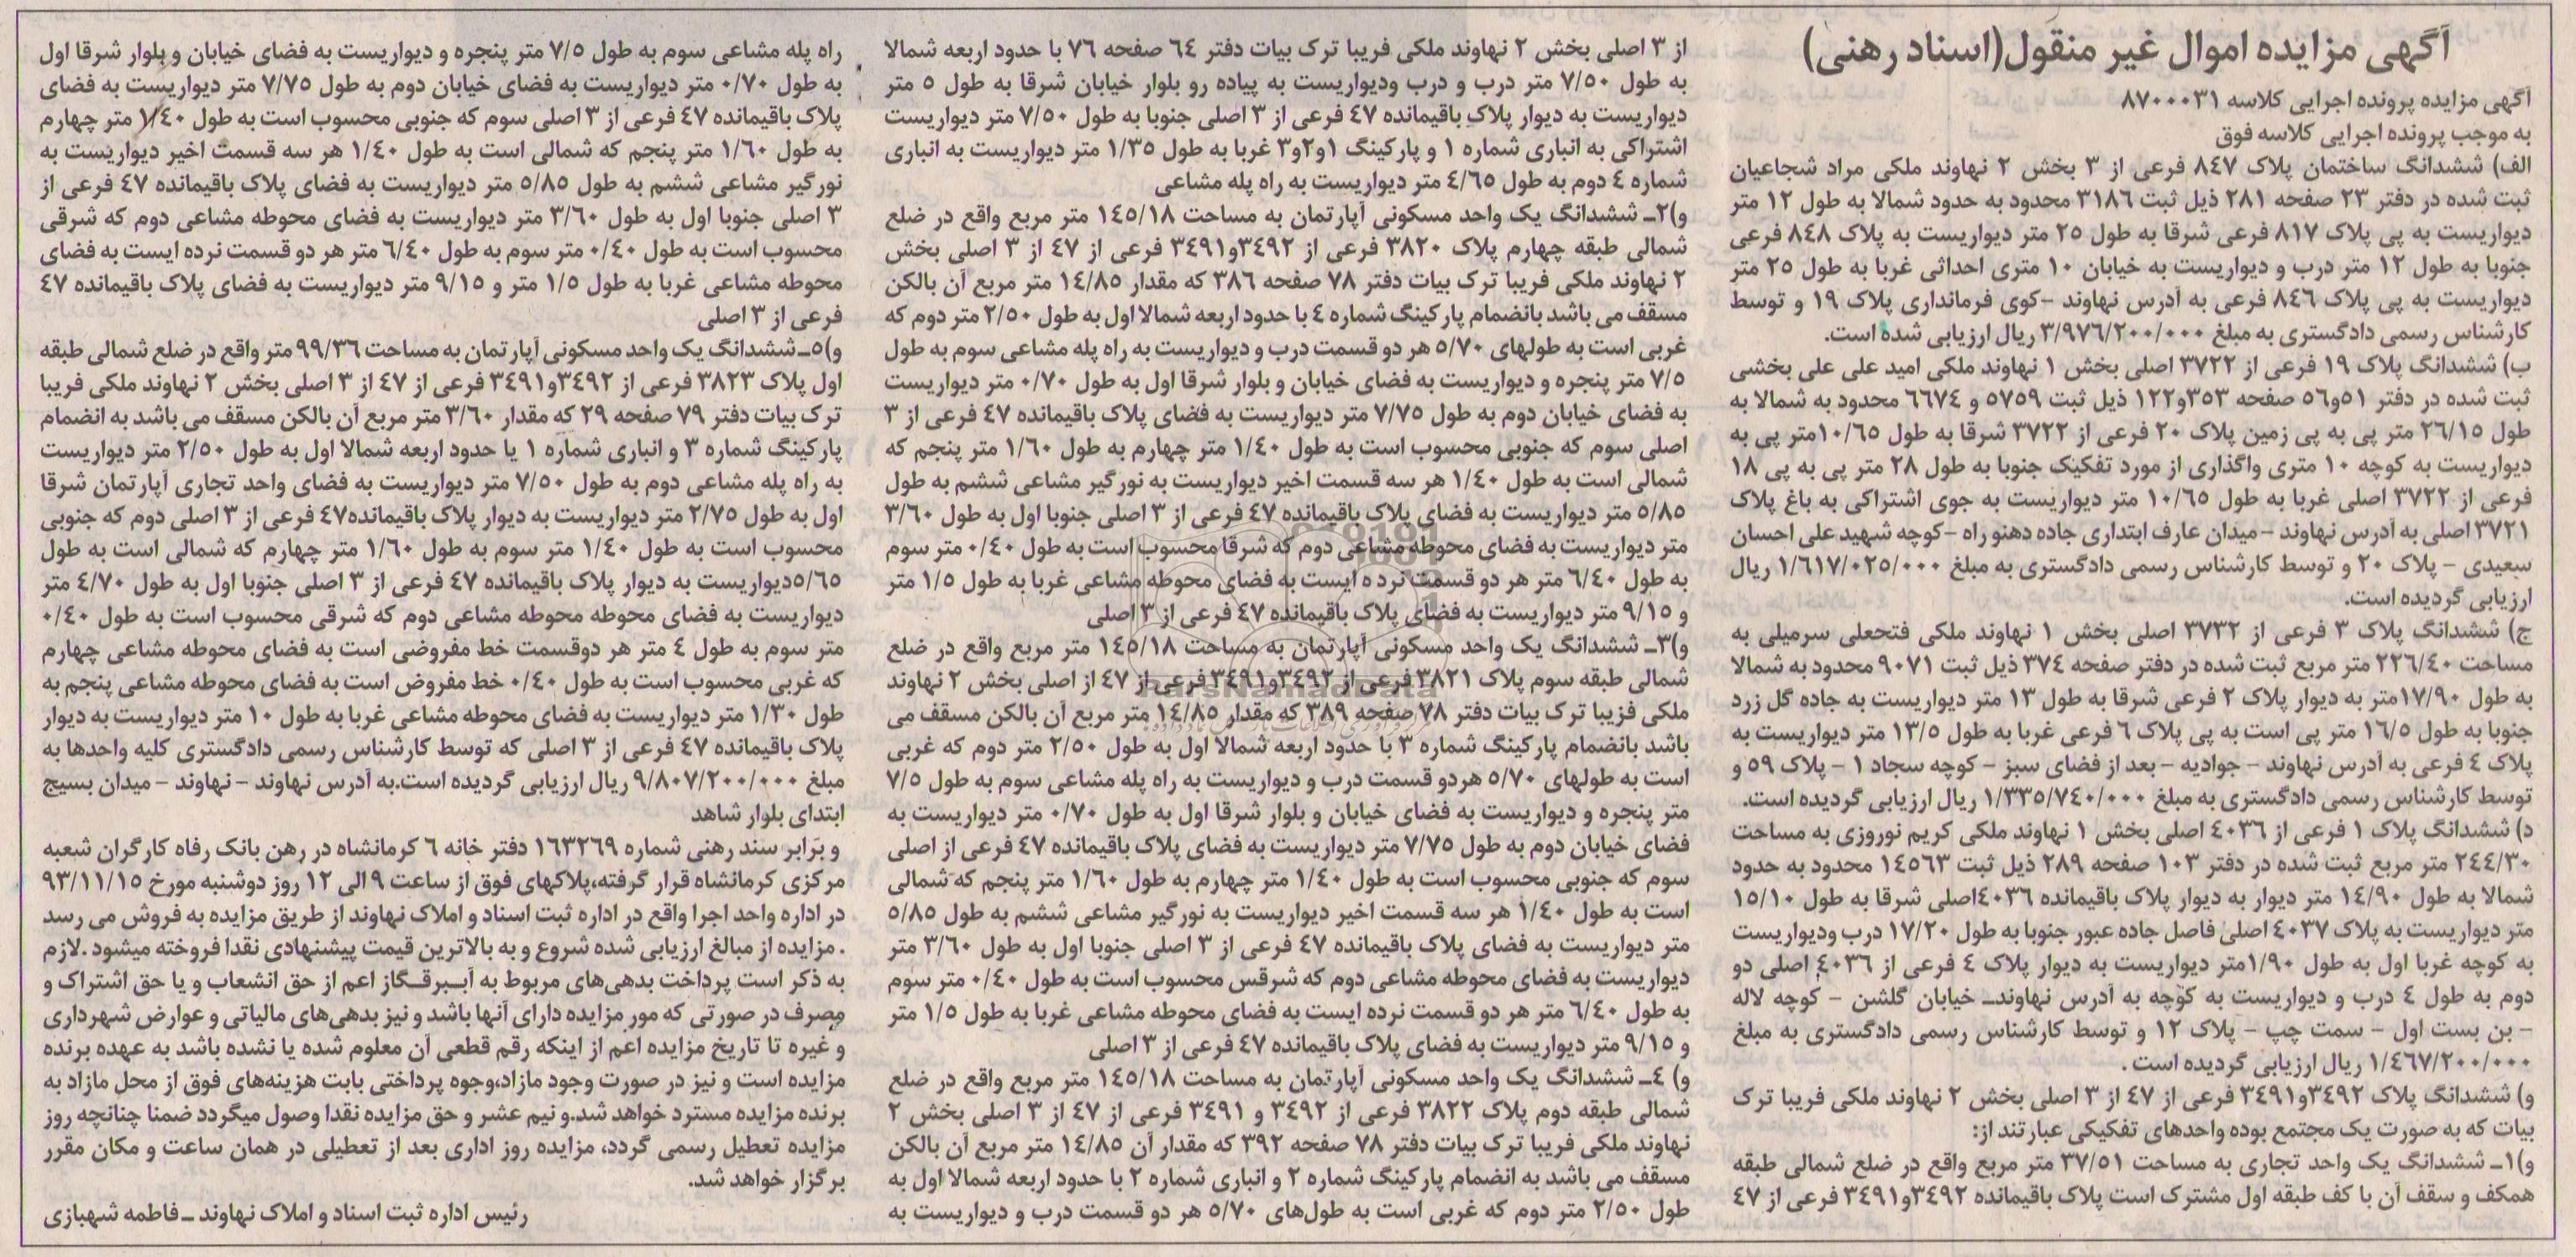 آگهی مزایده اموال غیر منقول(اسناد رهنی)
آگهی مزایده پرونده اجرایی کلاسه ۸۷۰۰۰۳۱
به موجب پرونده اجرایی کلاسه فوق
الف) ششدانگ ساختمان پلاک ۸۴۷ فرعی از ۳ بخش ۲ نهاوند ملکی مراد شجاعیان
ثبت شده در دفتر ۲۳ صفحه ۲۸۱ ذیل ثبت ۳۱۸۶ محدود به حدود شمالا به طول ۱۲ متر
دیواریست به پی پلاک ۸۱۷ فرعی شرقا به طول ۲۵ متر دیواریست به پلاک ۸۴۸ فرعی
جنوبا به طول ۱۲ متر درب و دیواریست به خیابان ۱۰ متری احداثی غربا به طول ۲۵ متر
دیواریست به پی پلاک ۸۴۶ فرعی به آدرس نهاوند -کوی فرمانداری پلاک ۱۹ و توسط
کارشناس رسمی دادگستری به مبلغ ۳/۹۷۶/۲۰۰/۰۰۰ ریال ارزیابی شده است.
ب) ششدانگ پلاک ۱۹ فرعی از ۳۷۲۲ اصلی بخش ۱ نهاوند ملکی امید علی علی بخشی
ثبت شده در دفتر ۵۱و۵۶ صفحه ۳۵۳و۱۲۲ ذیل ثبت ۵۷۵۹ و ۶۶۷۴ محدود به شمالا به
طول ۲۶/۱۵ متر پی به پی زمین پلاک ۲۰ فرعی از ۳۷۲۲ شرقا به طول ۱۰/۶۵متر پی به
دیواریست به کوچه ۱۰ متری واگذاری از مورد تفکیک جنوبا به طول ۲۸ متر پی به پی ۱۸
فرعی از ۳۷۲۲ اصلی غربا به طول ۱۰/۶۵ متر دیواریست به جوی اشتراکی به باغ پلاک
۳۷۲۱ اصلی به آدرس نهاوند -میدان عارف ابتداری جاده دهنو راه -کوچه شهید علی احسان
سعیدی - پلاک ۲۰ و توسط کارشناس رسمی دادگستری به مبلغ ۱/۶۱۷/۰۲۵/۰۰۰ ریال
ارزیابی گردیده است.
ج) ششدانگ پلاک ۳ فرعی از ۳۷۳۲ اصلی بخش ۱ نهاوند ملکی فتحعلی سرمیلی به
مساحت ۲۲۶/۴۰ متر مربع ثبت شده در دفتر صفحه ۳۷۴ ذیل ثبت ۹۰۷۱ محدود به شمالا
به طول ۱۷/۹۰متر به دیوار پلاک ۲ فرعی شرقا به طول ۱۳ متر دیواریست به جاده گل زرد
جنوبا به طول ۱۶/۵ متر پی است به پی پلاک ۶ فرعی غربا به طول ۱۳/۵ متر دیواریست به
پلاک ۴ فرعی به آدرس نهاوند - جوادیه - بعد از فضای سبز - کوچه سجاد ۱ - پلاک ۵۹ و
توسط کارشناس رسمی دادگستری به مبلغ ۱/۳۳۵/۷۴۰/۰۰۰ ریال ارزیابی گردیده است.
د) ششدانگ پلاک ۱ فرعی از ۴۰۳۶ اصلی بخش ۱ نهاوند ملکی کریم نوروزی به مساحت
۲۴۴/۳۰ متر مربع ثبت شده در دفتر ۱۰۳ صفحه ۲۸۹ ذیل ثبت ۱۴۵۶۳ محدود به حدود
شمالا به طول ۱۴/۹۰ متر دیوار به دیوار پلاک باقیمانده ۴۰۳۶اصلی شرقا به طول ۱۵/۱۰
متر دیواریست به پلاک ۴۰۳۷ اصلی فاصل جاده عبور جنوبا به طول ۱۷/۲۰ درب ودیواریست
به کوچه غربا اول به طول ۱/۹۰متر دیواریست به دیوار پلاک ۴ فرعی از ۴۰۳۶ اصلی دو
دوم به طول ۴ درب و دیواریست به کوچه به آدرس نهاوندـ خیابان گلشن - کوچه لاله
- بن بست اول - سمت چپ - پلاک ۱۲ و توسط کارشناس رسمی دادگستری به مبلغ
۱/۴۶۷/۲۰۰/۰۰۰ ریال ارزیابی گردیده است .
و) ششدانگ پلاک ۳۴۹۲و۳۴۹۱ فرعی از ۴۷ از ۳ اصلی بخش ۲ نهاوند ملکی فریبا ترک
بیات که به صورت یک مجتمع بوده واحدهای تفکیکی عبارتند از:
و)۱ـ ششدانگ یک واحد تجاری به مساحت ۳۷/۵۱ متر مربع واقع در ضلع شمالی طبقه
همکف و سقف آن با کف طبقه اول مشترک است پلاک باقیمانده ۳۴۹۲و۳۴۹۱ فرعی از ۴۷
از ۳ اصلی بخش ۲ نهاوند ملکی فریبا ترک بیات دفتر ۶۴ صفحه ۷۶ با حدود اربعه شمالا
به طول ۷/۵۰ متر درب و درب ودیواریست به پیاده رو بلوار خیابان شرقا به طول ۵ متر
دیواریست به دیوار پلاک باقیمانده ۴۷ فرعی از ۳ اصلی جنوبا به طول ۷/۵۰ متر دیواریست
اشتراکی به انباری شماره ۱ و پارکینگ ۱و۲و۳ غربا به طول ۱/۳۵ متر دیواریست به انباری
شماره ۴ دوم به طول ۴/۶۵ متر دیواریست به راه پله مشاعی
و)۲ـ ششدانگ یک واحد مسکونی آپارتمان به مساحت ۱۴۵/۱۸ متر مربع واقع در ضلع
شمالی طبقه چهارم پلاک ۳۸۲۰ فرعی از ۳۴۹۲و۳۴۹۱ فرعی از ۴۷ از ۳ اصلی بخش
۲ نهاوند ملکی فریبا ترک بیات دفتر ۷۸ صفحه ۳۸۶ که مقدار ۱۴/۸۵ متر مربع آن بالکن
مسقف می باشد بانضمام پارکینگ شماره ۴ با حدود اربعه شمالا اول به طول ۲/۵۰ متر دوم که
غربی است به طولهای ۵/۷۰ هر دو قسمت درب و دیواریست به راه پله مشاعی سوم به طول
۷/۵ متر پنجره و دیواریست به فضای خیابان و بلوار شرقا اول به طول ۰/۷۰ متر دیواریست
به فضای خیابان دوم به طول ۷/۷۵ متر دیواریست به فضای پلاک باقیمانده ۴۷ فرعی از ۳
اصلی سوم که جنوبی محسوب است به طول ۱/۴۰ متر چهارم به طول ۱/۶۰ متر پنجم که
شمالی است به طول ۱/۴۰ هر سه قسمت اخیر دیواریست به نورگیر مشاعی ششم به طول
۵/۸۵ متر دیواریست به فضای پلاک باقیمانده ۴۷ فرعی از ۳ اصلی جنوبا اول به طول ۳/۶۰
متر دیواریست به فضای محوطه مشاعی دوم که شرقا محسوب است به طول ۰/۴۰ متر سوم
به طول ۶/۴۰ متر هر دو قسمت نرد ه ایست به فضای محوطه مشاعی غربا به طول ۱/۵ متر
و ۹/۱۵ متر دیواریست به فضای پلاک باقیمانده ۴۷ فرعی از ۳ اصلی
و)۳ـ ششدانگ یک واحد مسکونی آپارتمان به مساحت ۱۴۵/۱۸ متر مربع واقع در ضلع
شمالی طبقه سوم پلاک ۳۸۲۱ فرعی از ۳۴۹۲و۳۴۹۱ فرعی از ۴۷ از اصلی بخش ۲ نهاوند
ملکی فزیبا ترک بیات دفتر ۷۸ صفحه ۳۸۹ که مقدار ۱۴/۸۵ متر مربع آن بالکن مسقف می
باشد بانضمام پارکینگ شماره ۳ با حدود اربعه شمالا اول به طول ۲/۵۰ متر دوم که غربی
است به طولهای ۵/۷۰ هردو قسمت درب و دیواریست به راه پله مشاعی سوم به طول ۷/۵
متر پنجره و دیواریست به فضای خیابان و بلوار شرقا اول به طول ۰/۷۰ متر دیواریست به
فضای خیابان دوم به طول ۷/۷۵ متر دیواریست به فضای پلاک باقیمانده ۴۷ فرعی از اصلی
سوم که جنوبی محسوب است به طول ۱/۴۰ متر چهارم به طول ۱/۶۰ متر پنجم که شمالی
است به طول ۱/۴۰ هر سه قسمت اخیر دیواریست به نورگیر مشاعی ششم به طول ۵/۸۵
متر دیواریست به فضای پلاک باقیمانده ۴۷ فرعی از ۳ اصلی جنوبا اول به طول ۳/۶۰ متر
دیواریست به فضای محوطه مشاعی دوم که شرقس محسوب است به طول ۰/۴۰ متر سوم
به طول ۶/۴۰ متر هر دو قسمت نرده ایست به فضای محوطه مشاعی غربا به طول ۱/۵ متر
و ۹/۱۵ متر دیواریست به فضای پلاک باقیمانده ۴۷ فرعی از ۳ اصلی
و) ۴ـ ششدانگ یک واحد مسکونی آپارتمان به مساحت ۱۴۵/۱۸ متر مربع واقع در ضلع
شمالی طبقه دوم پلاک ۳۸۲۲ فرعی از ۳۴۹۲ و ۳۴۹۱ فرعی از ۴۷ از ۳ اصلی بخش ۲
نهاوند ملکی فریبا ترک بیات دفتر ۷۸ صفحه ۳۹۲ که مقدار آن ۱۴/۸۵ متر مربع آن بالکن
مسقف می باشد به انضمام پارکینگ شماره ۲ و انباری شماره ۲ با حدود اربعه شمالا اول به
طول ۲/۵۰ متر دوم که غربی است به طول‌های ۵/۷۰ هر دو قسمت درب و دیواریست به
راه پله مشاعی سوم به طول ۷/۵ متر پنجره و دیواریست به فضای خیابان و بلوار شرقا اول
به طول ۰/۷۰ متر دیواریست به فضای خیابان دوم به طول ۷/۷۵ متر دیواریست به فضای
پلاک باقیمانده ۴۷ فرعی از ۳ اصلی سوم که جنوبی محسوب است به طول ۱/۴۰ متر چهارم
به طول ۱/۶۰ متر پنجم که شمالی است به طول ۱/۴۰ هر سه قسمت اخیر دیواریست به
نورگیر مشاعی ششم به طول ۵/۸۵ متر دیواریست به فضای پلاک باقیمانده ۴۷ فرعی از
۳ اصلی جنوبا اول به طول ۳/۶۰ متر دیواریست به فضای محوطه مشاعی دوم که شرقی
محسوب است به طول ۰/۴۰ متر سوم به طول ۶/۴۰ متر هر دو قسمت نرده ایست به فضای
محوطه مشاعی غربا به طول ۱/۵ متر و ۹/۱۵ متر دیواریست به فضای پلاک باقیمانده ۴۷
فرعی از ۳ اصلی
و)۵ـ ششدانگ یک واحد مسکونی آپارتمان به مساحت ۹۹/۳۶ متر واقع در ضلع شمالی طبقه
اول پلاک ۳۸۲۳ فرعی از ۳۴۹۲و۳۴۹۱ فرعی از ۴۷ از ۳ اصلی بخش ۲ نهاوند ملکی فریبا
ترک بیات دفتر ۷۹ صفحه ۲۹ که مقدار ۳/۶۰ متر مربع آن بالکن مسقف می باشد به انضمام
پارکینگ شماره ۳ و انباری شماره ۱ یا حدود اربعه شمالا اول به طول ۲/۵۰ متر دیواریست
به راه پله مشاعی دوم به طول ۷/۵۰ متر دیواریست به فضای واحد تجاری آپارتمان شرقا
اول به طول ۲/۷۵ متر دیواریست به دیوار پلاک باقیمانده۴۷ فرعی از ۳ اصلی دوم که جنوبی
محسوب است به طول ۱/۴۰ متر سوم به طول ۱/۶۰ متر چهارم که شمالی است به طول
۵/۶۵دیواریست به دیوار پلاک باقیمانده ۴۷ فرعی از ۳ اصلی جنوبا اول به طول ۴/۷۰ متر
دیواریست به فضای محوطه محوطه مشاعی دوم که شرقی محسوب است به طول ۰/۴۰
متر سوم به طول ۴ متر هر دوقسمت خط مفروضی است به فضای محوطه مشاعی چهارم
که غربی محسوب است به طول ۰/۴۰ خط مفروض است به فضای محوطه مشاعی پنجم به
طول ۱/۳۰ متر دیواریست به فضای محوطه مشاعی غربا به طول ۱۰ متر دیواریست به دیوار
پلاک باقیمانده ۴۷ فرعی از ۳ اصلی که توسط کارشناس رسمی دادگستری کلیه واحدها به
مبلغ ۹/۸۰۷/۲۰۰/۰۰۰ ریال ارزیابی گردیده است.به آدرس نهاوند - نهاوند - میدان بسیج
ابتدای بلوار شاهد
و برابر سند رهنی شماره ۱۶۳۲۶۹ دفتر خانه ۶ کرمانشاه در رهن بانک رفاه کارگران شعبه
مرکزی کرمانشاه قرار گرفته،پلاکهای فوق از ساعت ۹ الی ۱۲ روز دوشنبه مورخ ۹۳/۱۱/۱۵
در اداره واحد اجرا واقع در اداره ثبت اسناد و املاک نهاوند از طریق مزایده به فروش می رسد
. مزایده از مبالغ ارزیابی شده شروع و به بالاترین قیمت پیشنهادی نقدا فروخته میشود .لازم
به ذکر است پرداخت بدهی‌های مربوط به آب‌برق‌گاز اعم از حق انشعاب و یا حق اشتراک و
مصرف در صورتی که مور مزایده دارای آنها باشد و نیز بدهی‌های مالیاتی و عوارض شهرداری
و غیره تا تاریخ مزایده اعم از اینکه رقم قطعی آن معلوم شده یا نشده باشد به عهده برنده
مزایده است و نیز در صورت وجود مازاد،وجوه پرداختی بابت هزینه‌های فوق از محل مازاد به
برنده مزایده مسترد خواهد شد.و نیم عشر و حق مزایده نقدا وصول میگردد ضمنا چنانچه روز
مزایده تعطیل رسمی گردد، مزایده روز اداری بعد از تعطیلی در همان ساعت و مکان مقرر
برگزار خواهد شد.
رئیس اداره ثبت اسناد و املاک نهاوند ـ فاطمه شهبازی